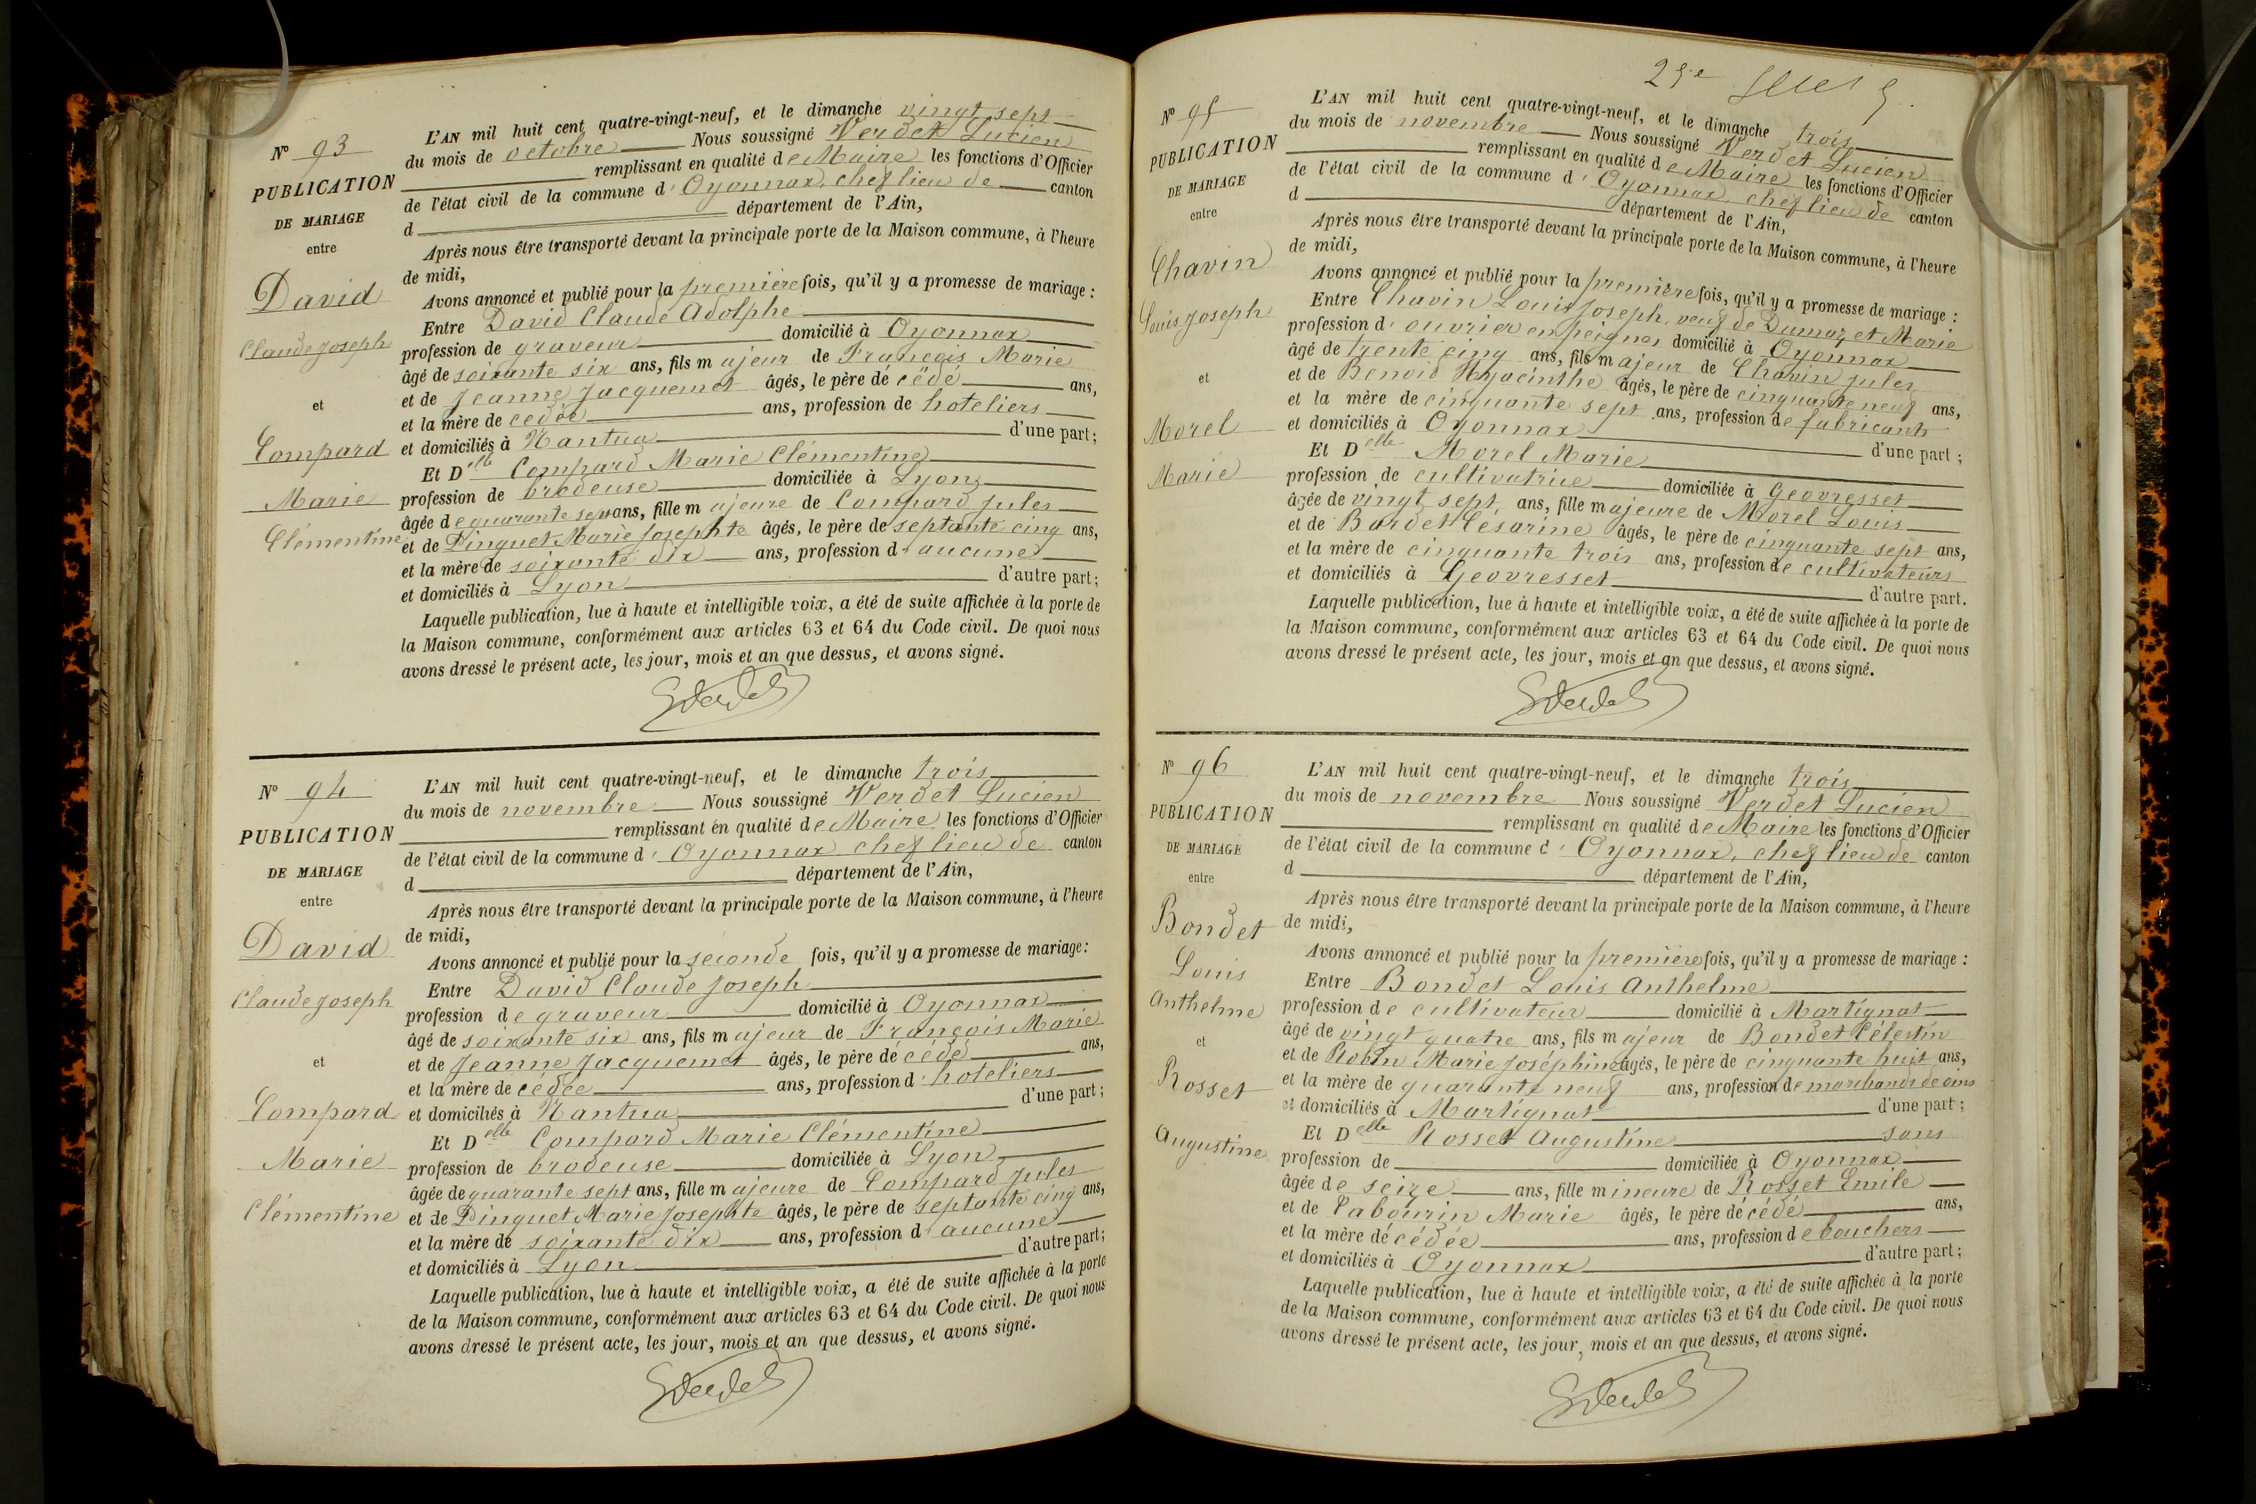 N° 93
PUBLICATION
DE MARIAGE
entre
David
Claude Joseph
et
Compard
Marie
Clémentine
L'AN mil huit cent quatre-vingt-neuf, et le dimanche vingt sept
du mois de octobre Nous soussigné Verdet Lucien
remplissant en qualité de Maire les fonctions d'Officier
de l'état civil de la commune d' Oyonnax, chef lieu de canton
d département de l'Ain,
Après nous être transporté devant la principale porte de la Maison commune, à l'heure
de midi,
Avons annoncé et publié pour la première fois, qu'il y a promesse de mariage :
Entre David Claude Adolphe
profession de graveur domicilié à Oyonnax
âgé de soixante six ans, fils majeur de François Marie
et de Jeanne Jacquemet âgés, le père décédé ans,
et la mère de cédée ans, profession de hoteliers
et domiciliés à Nantua d'une part;
Et Delle Compard Marie Clémentine
profession de brodeuse domiciliée à Lyon
âgée de quarante sept ans, fille majeure de Compard Jules
et de Pinguet Marie Josephte âgés, le père de septante cinq ans,
et la mère de soixante dix ans, profession d' aucune
et domiciliés à Lyon d'autre part;
Laquelle publication, lue à haute et intelligible voix, a été de suite affichée à la porte de
la Maison commune, conformément aux articles 63 et 64 du Code civil. De quoi nous
avons dressé le présent acte, les jour, mois et an que dessus, et avons signé.
N° 94
PUBLICATION
DE MARIAGE
entre
David
Claude Joseph
et
Compard
Marie
Clémentine
L'AN mil huit cent quatre-vingt-neuf, et le dimanche trois
du mois de novembre Nous soussigné Verdet Lucien
remplissant en qualité de Maire les fonctions d'Officier
de l'état civil de la commune d' Oyonnax chef lieu de canton
d département de l'Ain,
Après nous être transporté devant la principale porte de la Maison commune, à l'heure
de midi,
Avons annoncé et publié pour la seconde fois, qu'il y a promesse de mariage:
Entre David Claude Joseph
profession de graveur domicilié à Oyonnax
âgé de soixante six ans, fils majeur de François Marie
et de Jeanne Jacquemet âgés, le père décédé ans,
et la mère de cédée ans, profession d' hoteliers
et domiciliés à Nantua d'une part;
Et Delle Compard Marie Clémentine
profession de brodeuse domiciliée à Lyon
âgée de quarante sept ans, fille majeure de Compard Jules
et de Pinguet Marie Josephte âgés, le père de septante cinq ans,
et la mère de soixante dix ans, profession d' aucune
et domiciliés à Lyon d'autre part;
Laquelle publication, lue à haute et intelligible voix, a été de suite affichée à la porte
de la Maison commune, conformément aux articles 63 et 64 du Code civil. De quoi nous
avons dressé le présent acte, les jour, mois et an que dessus, et avons signé.
N° 95
PUBLICATION
DE MARIAGE
entre
Chavin
Louis Joseph
et
Morel
Marie
L'AN mil huit cent quatre-vingt-neuf, et le dimanche trois
du mois de novembre Nous soussigné Verdet Lucien
remplissant en qualité de Maire les fonctions d'Officier
de l'état civil de la commune d' Oyonnax, chef lieu de canton
d département de l'Ain,
Après nous être transporté devant la principale porte de la Maison commune, à l'heure
de midi,
Avons annoncé et publié pour la première fois, qu'il y a promesse de mariage :
Entre Chavin Louis Joseph, veuf de Dumaz et Marie
profession d' ouvrier en peignes domicilié à Oyonnax
âgé de trente cinq ans, fils majeur de Chavin Jules
et de Benoid Hyacinthe âgés, le père de cinquante neuf ans,
et la mère de cinquante sept ans, profession de fabricants
et domiciliés à Oyonnax d'une part ;
Et Delle Morel Marie
profession de cultivatrice domiciliée à Geovresset
âgée de vingt sept ans, fille majeure de Morel Louis
et de Bardet Césarine âgés, le père de cinquante sept ans,
et la mère de cinquante trois ans, profession de cultivateurs
et domiciliés à Geovresset d'autre part.
Laquelle publication, lue à haute et intelligible voix, a été de suite affichée à la porte de
la Maison commune, conformément aux articles 63 et 64 du Code civil. De quoi nous
avons dressé le présent acte, les jour, mois et an que dessus, et avons signé.
N° 96
PUBLICATION
DE MARIAGE
entre
Bondet
Louis
Anthelme
et
Rosset
Augustine
L'AN mil huit cent quatre-vingt-neuf, et le dimanche trois
du mois de novembre Nous soussigné Verdet Lucien
remplissant en qualité de Maire les fonctions d'Officier
de l'état civil de la commune d' Oyonnax, chef lieu de canton
d département de l'Ain,
Après nous être transporté devant la principale porte de la Maison commune, à l'heure
de midi,
Avons annoncé et publié pour la première fois, qu'il y a promesse de mariage :
Entre Bondet Louis Anthelme
profession de cultivateur domicilié à Martignat
âgé de vingt quatre ans, fils majeur de Bondet Célestin
et de Robin Marie Joséphine âgés, le père de cinquante huit ans,
et la mère de quarante neuf ans, profession de marchands de vins
et domiciliés à Martignat d'une part ;
Et Delle Rosset Augustine sans
profession de domiciliée à Oyonnax
âgée de seize ans, fille mineure de Rosset Emile
et de Tabourin Marie âgés, le père décédé ans,
et la mère décédée ans, profession de bouchers
et domiciliés à Oyonnax d'autre part ;
Laquelle publication, lue à haute et intelligible voix, a été de suite affichée à la porte
de la Maison commune, conformément aux articles 63 et 64 du Code civil. De quoi nous
avons dressé le présent acte, les jour, mois et an que dessus, et avons signé.